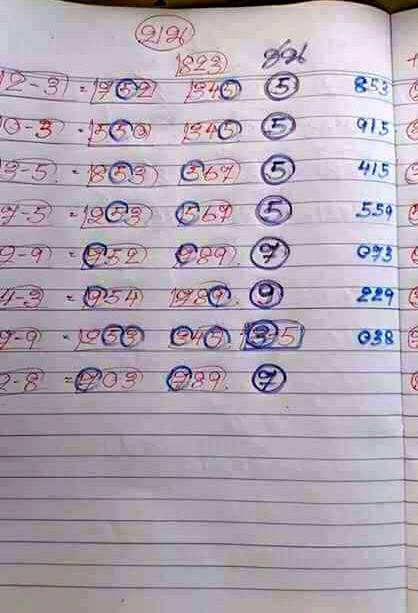 823
12-3 = 952 345 5 853
10-3 = 550 345 5 915
3-5 = 853 567 5 415
7-5 = 953 567 5 559
2-9 = 952 789 7 093
4-3 = 954 789 9 229
9-9 = 953 345 35 038
2-8 = 703 789 7